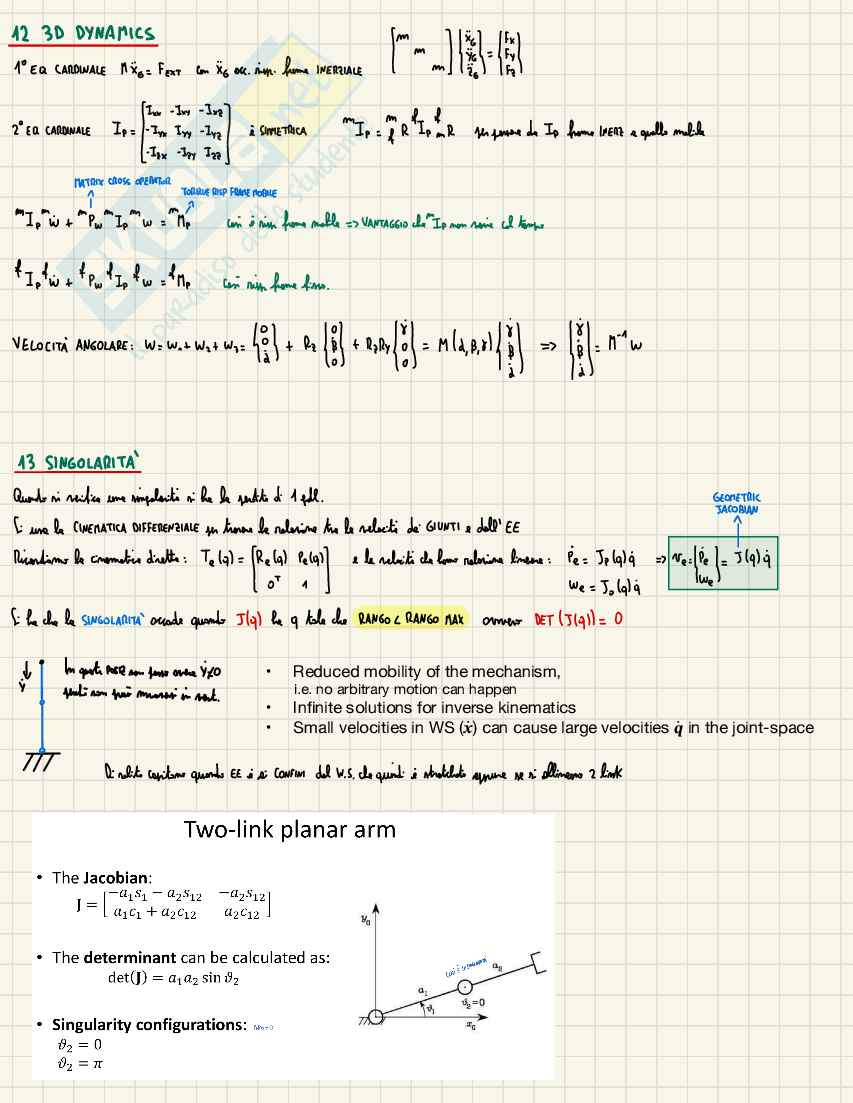 12 3D DYNAMICS
1° EQ CARDINALE M ẍ_G = F_EXT con ẍ_G acc. risp. frame INERZIALE [m m m] {ẍ_G ÿ_G z̈_G} = {F_x F_y F_z}
2° EQ CARDINALE I_P = [I_xx -I_xy -I_xz; -I_yx I_yy -I_yz; -I_zx -I_zy I_zz] è SIMMETRICA ᵐI_P = ᵐ_f R ᶠI_P ᶠ_m R per passare da I_P frame INERZ a quello mobile
MATRIX CROSS OPERATOR
TORQUE RISP FRAME MOBILE
ᵐI_P ᵐẇ + ᵐP_w ᵐI_P ᵐw = ᵐM_P così è risp frame mobile => VANTAGGIO che ᵐI_P non varia col tempo
ᶠI_P ᶠẇ + ᶠP_w ᶠI_P ᶠw = ᶠM_P così risp frame fisso.
VELOCITÀ ANGOLARE: W = W₁ + W₂ + W₃ = {0 0 α̇} + R_z {0 β̇ 0} + R_z R_y {γ̇ 0 0} = M(α, β, γ) {γ̇ β̇ α̇} => {γ̇ β̇ α̇} = M⁻¹ W
13 SINGOLARITÀ
Quando si verifica una singolarità si ha la perdita di 1 gdl.
GEOMETRIC
JACOBIAN
Si usa la CINEMATICA DIFFERENZIALE per trovare la relazione tra le velocità dei GIUNTI e dell'EE
Ricordiamo la cinematica diretta: T_e(q) = [R_e(q) P_e(q); 0ᵀ 1] e le velocità che hanno relazione lineare: ṗ_e = J_P(q) q̇ => v_e = {ṗ_e w_e} = J(q) q̇
w_e = J_o(q) q̇
Si ha che la SINGOLARITÀ accade quando J(q) ha q tale che RANGO < RANGO MAX ovvero DET(J(q)) = 0
ẏ
In questa POSIZ non posso avere ẏ≠0
perché non può muoversi in vert.
• Reduced mobility of the mechanism,
i.e. no arbitrary motion can happen
• Infinite solutions for inverse kinematics
• Small velocities in WS (ẋ) can cause large velocities q̇ in the joint-space
Di solito capitano quando EE è ai CONFINI del W.S. che quindi è stretchato oppure se si allineano 2 link
Two-link planar arm
• The Jacobian:
J = [−a₁s₁ − a₂s₁₂ −a₂s₁₂; a₁c₁ + a₂c₁₂ a₂c₁₂]
• The determinant can be calculated as:
det(J) = a₁a₂ sin ϑ₂
• Singularity configurations:
ϑ₂ = 0
ϑ₂ = π
y₀
a₁
a₂
ϑ₁
ϑ₂=0
x₀
il paradiso dello studente